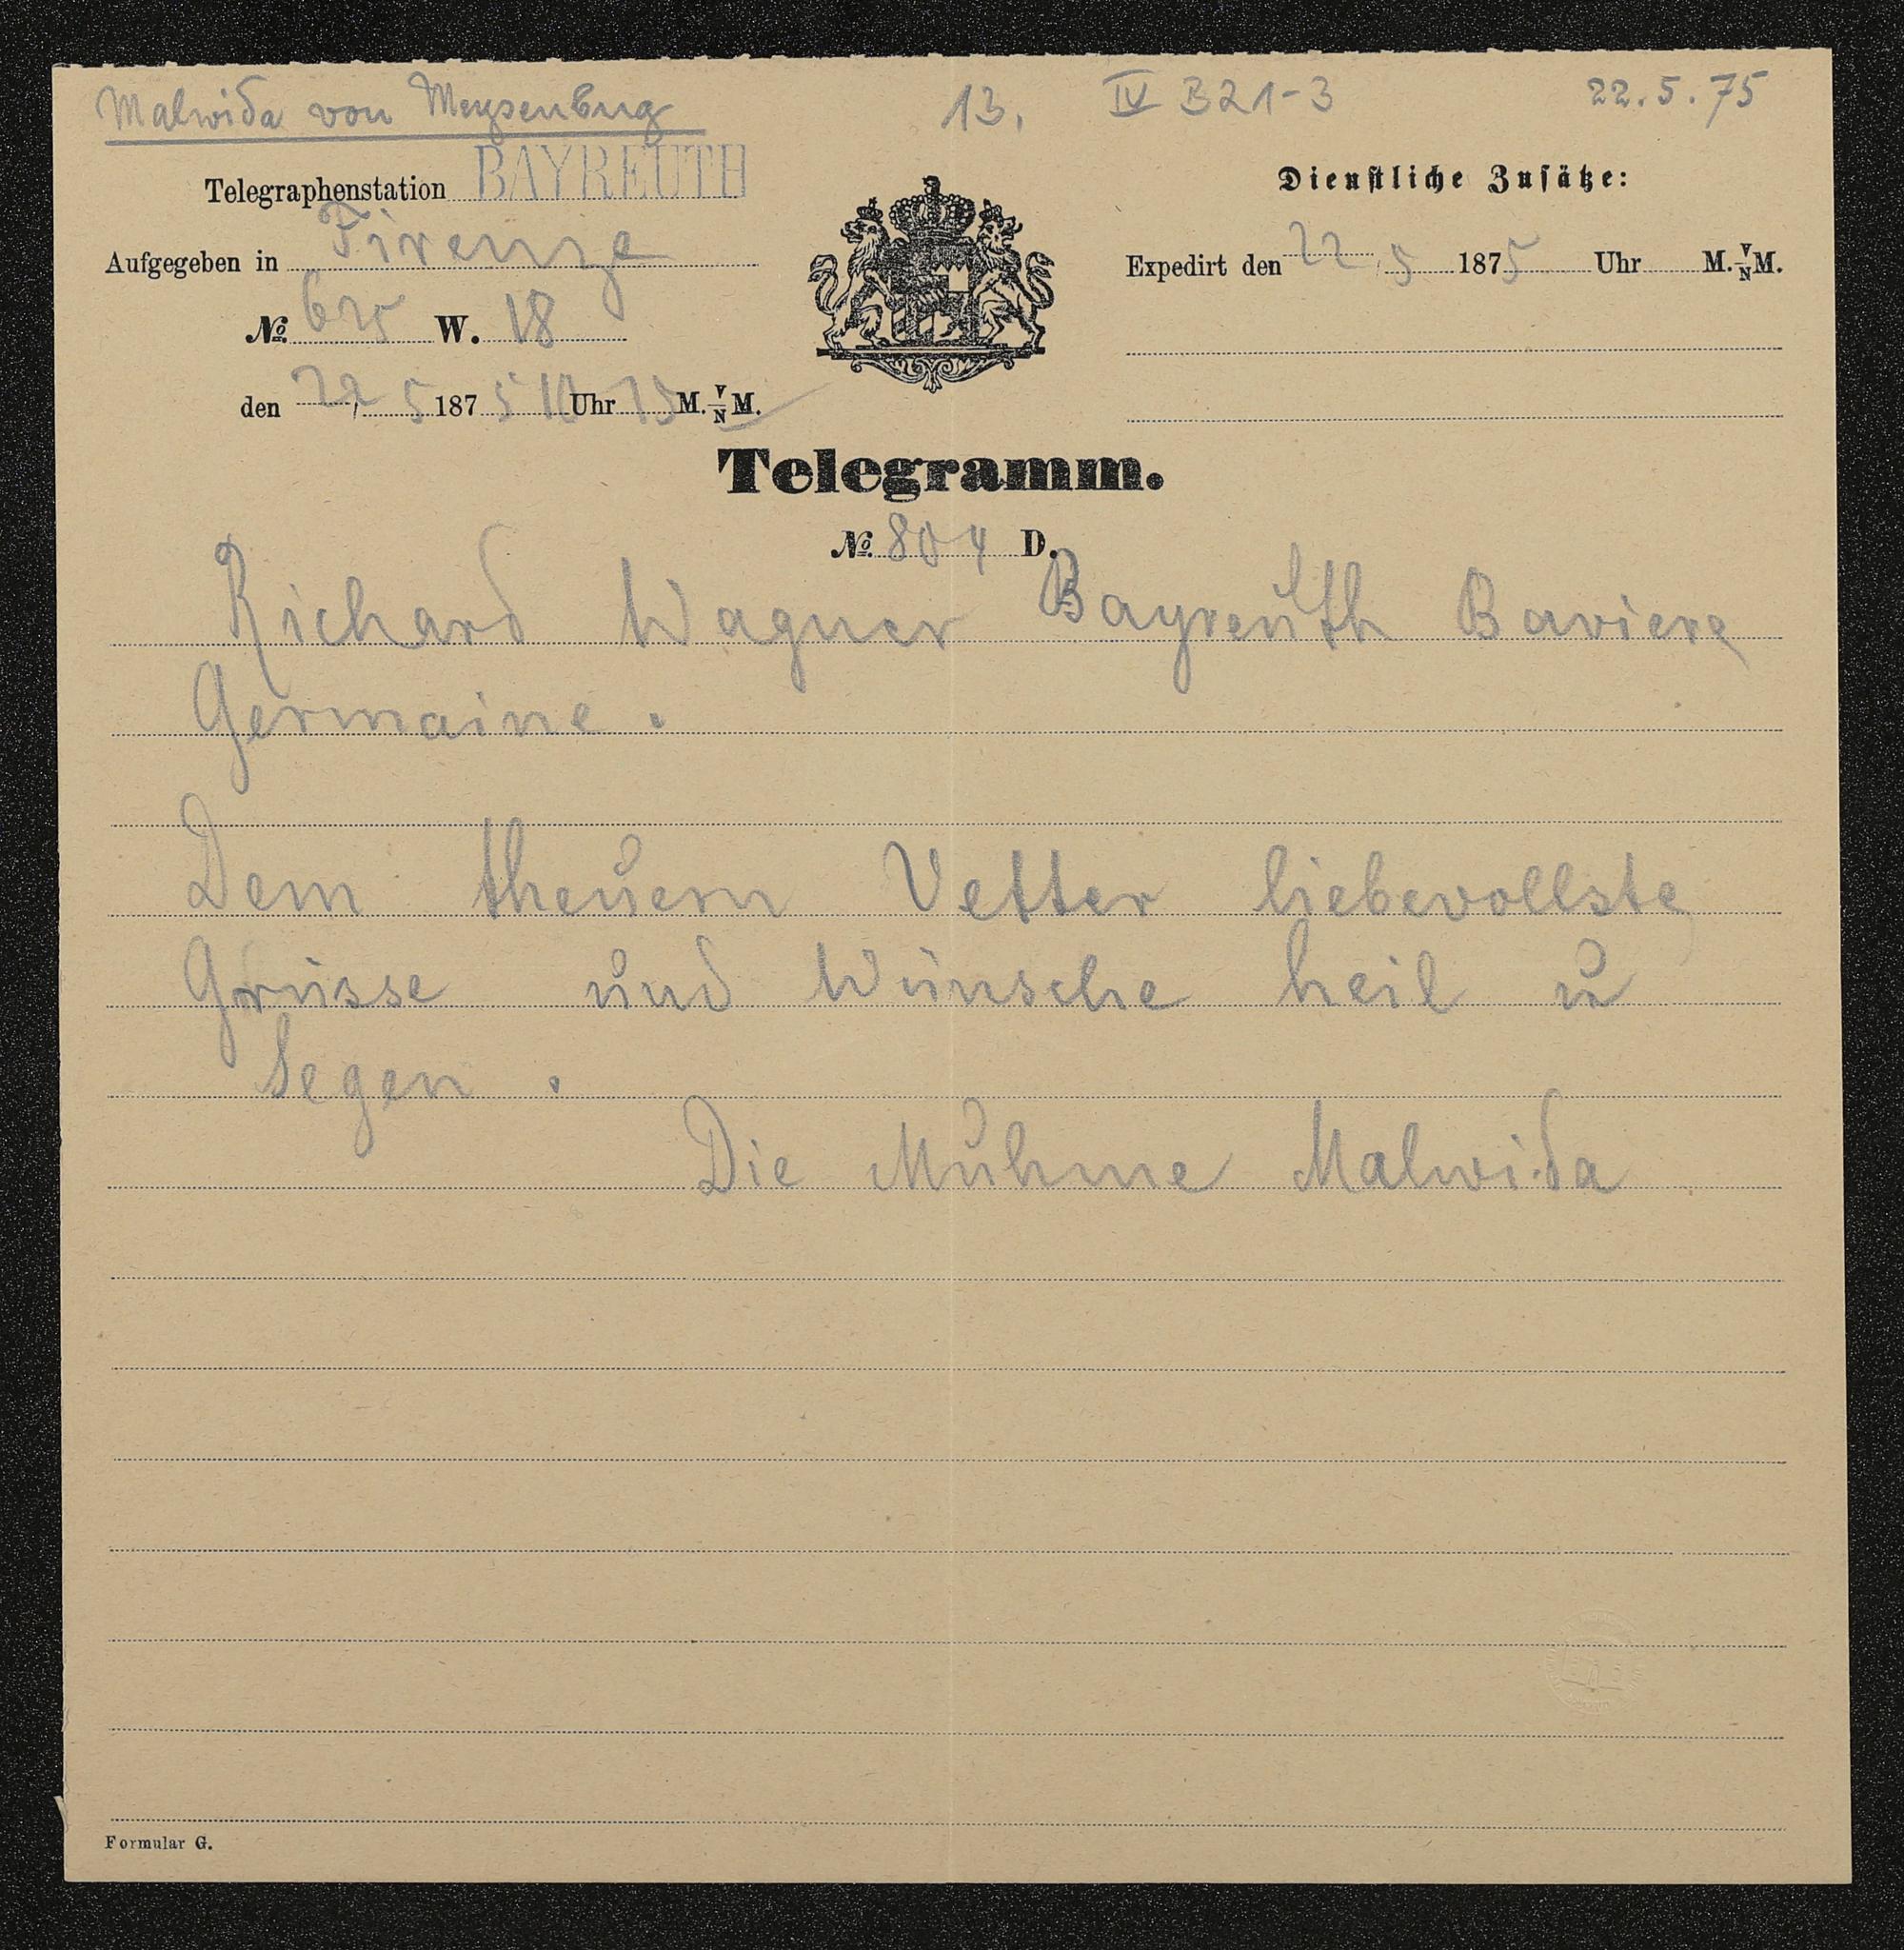 Malwida von Meysenbug 13. IV B 21-3 22.5.75
Telegraphenstation BAYREUTH
Dienstliche Zusätze:
Aufgegeben in Firenze
Expedirt den 22 5 1875 Uhr M. V/N M.
No. 625 W. 18
den 22, 5 1875 10 Uhr 15 M. V/N M.
Telegramm.
No. 804 D.
Richard Wagner Bayreuth Baviere
Germaine.
Dem theuern Vetter liebevollste
Grüsse und Wünsche heil u
Segen.
Die Muhme Malwida
Formular G.